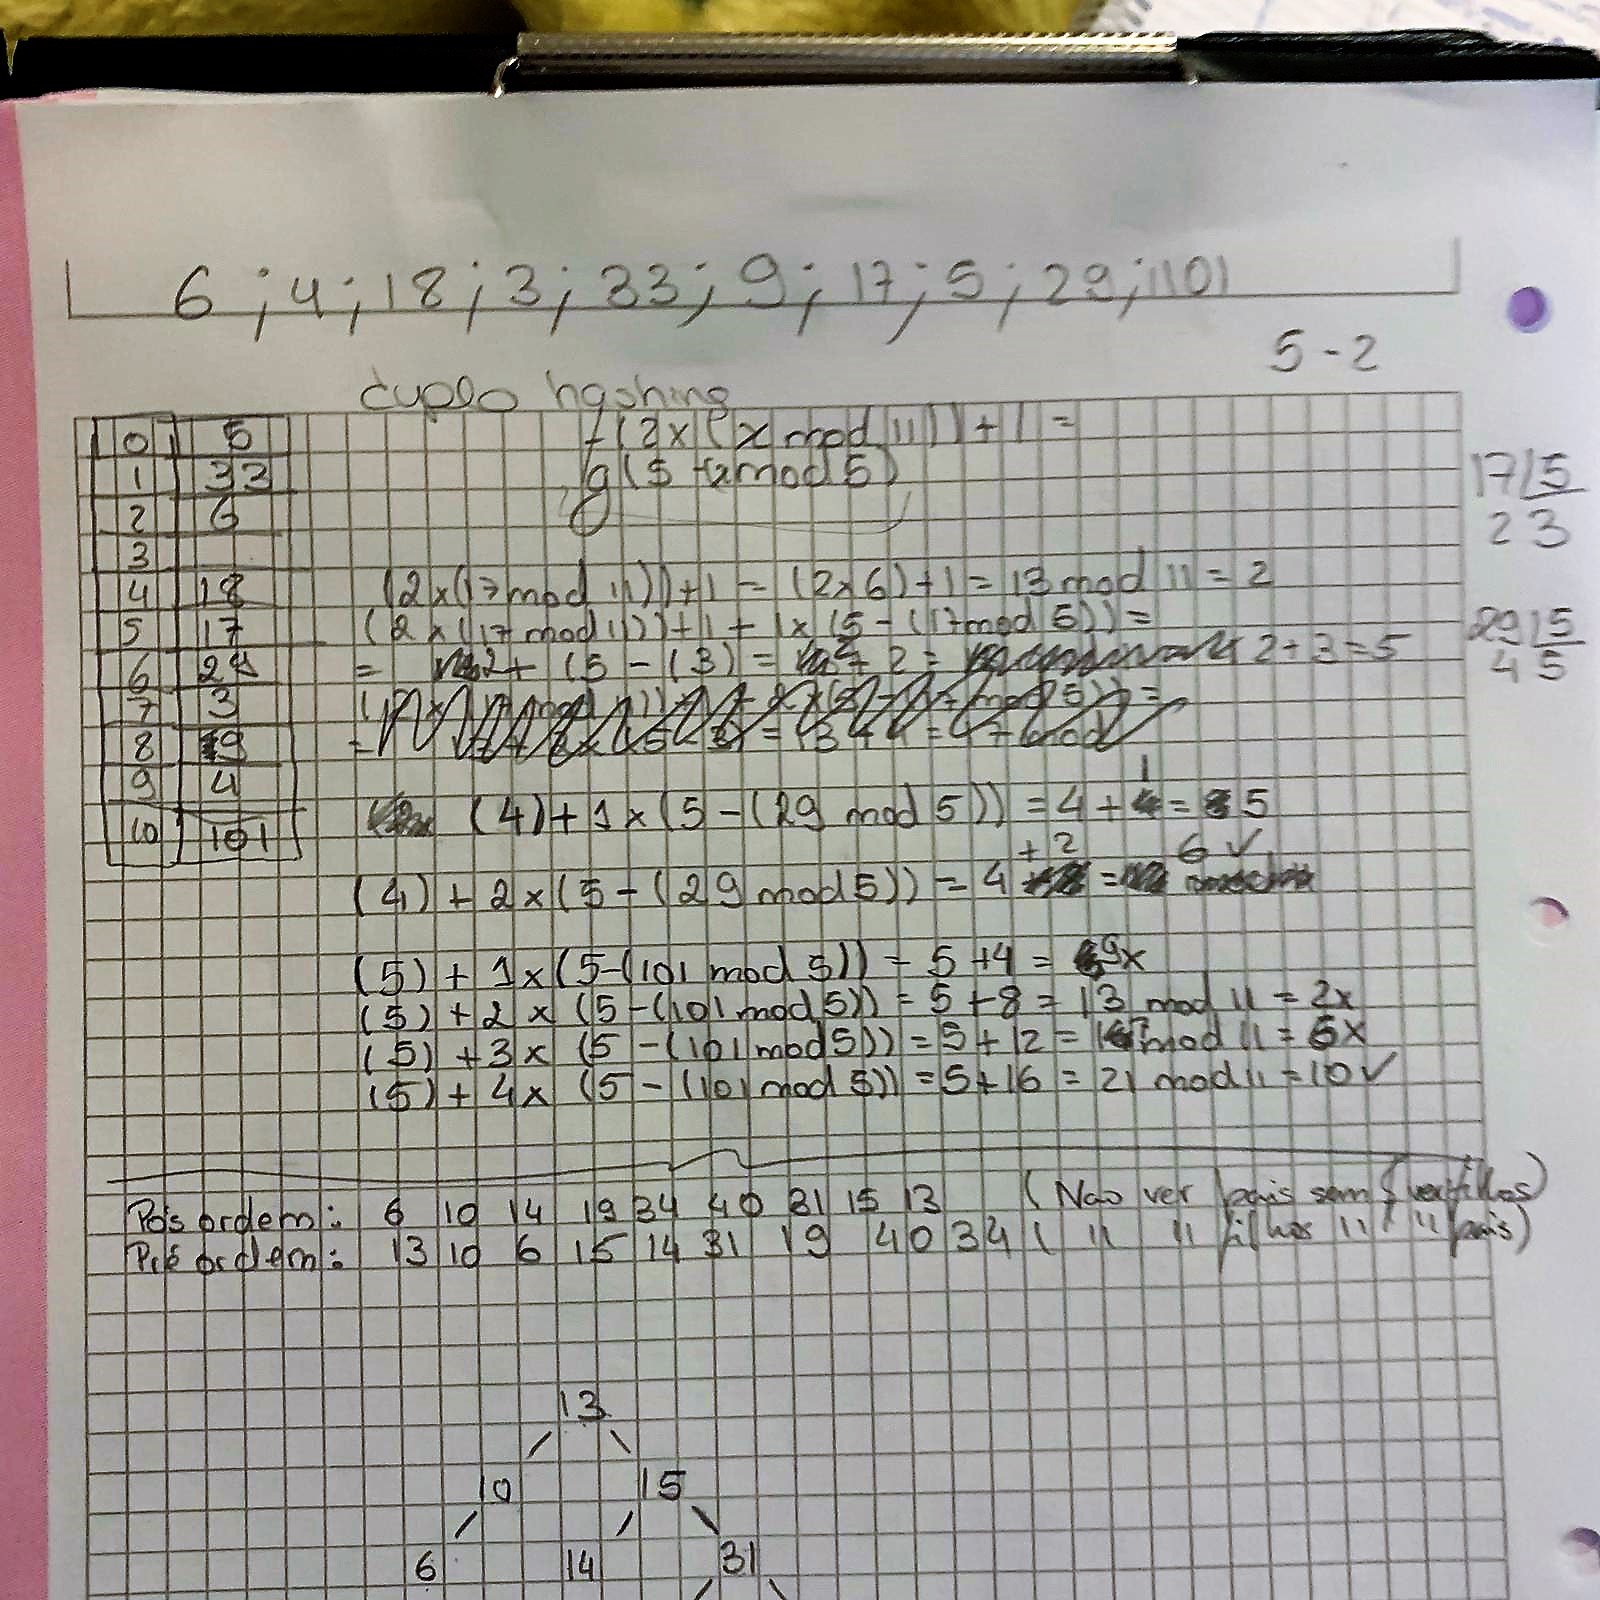 6 ; 4 ; 18 ; 3 ; 33 ; 9 ; 17 ; 5 ; 29 ; 101
5 - 2
duplo hashing
0 5
1 33
2 6
3
4 18
5 17
6 29
7 3
8 9
9 4
10 101
f(2x(x mod 11))+1 =
g(5 - x mod 5)
17 5
2 3
29 5
4 5
(2x(17 mod 11))+1 = (2x6)+1 = 13 mod 11 = 2
(2x(17 mod 11))+1 + 1x(5-(17 mod 5)) =
= 2+ (5-(3) = 2 = 2+3=5
(4)+1x(5-(29 mod 5)) = 4+1 = 5
(4)+2x(5-(29 mod 5)) = 4 +2 = 6 ✓
(5)+1x(5-(101 mod 5)) = 5+4 = 9x
(5)+2x(5-(101 mod 5)) = 5+8 = 13 mod 11 = 2x
(5)+3x(5-(101 mod 5)) = 5+12 = mod 11 = 6x
(5)+4x(5-(101 mod 5)) = 5+16 = 21 mod 11 = 10 ✓
Pós ordem: 6 10 14 19 34 40 31 15 13 (Nao ver pais sem ver filhos)
Pré ordem: 13 10 6 15 14 31 19 40 34 ( " " filhos " " pais)
13
10 15
6 14 31